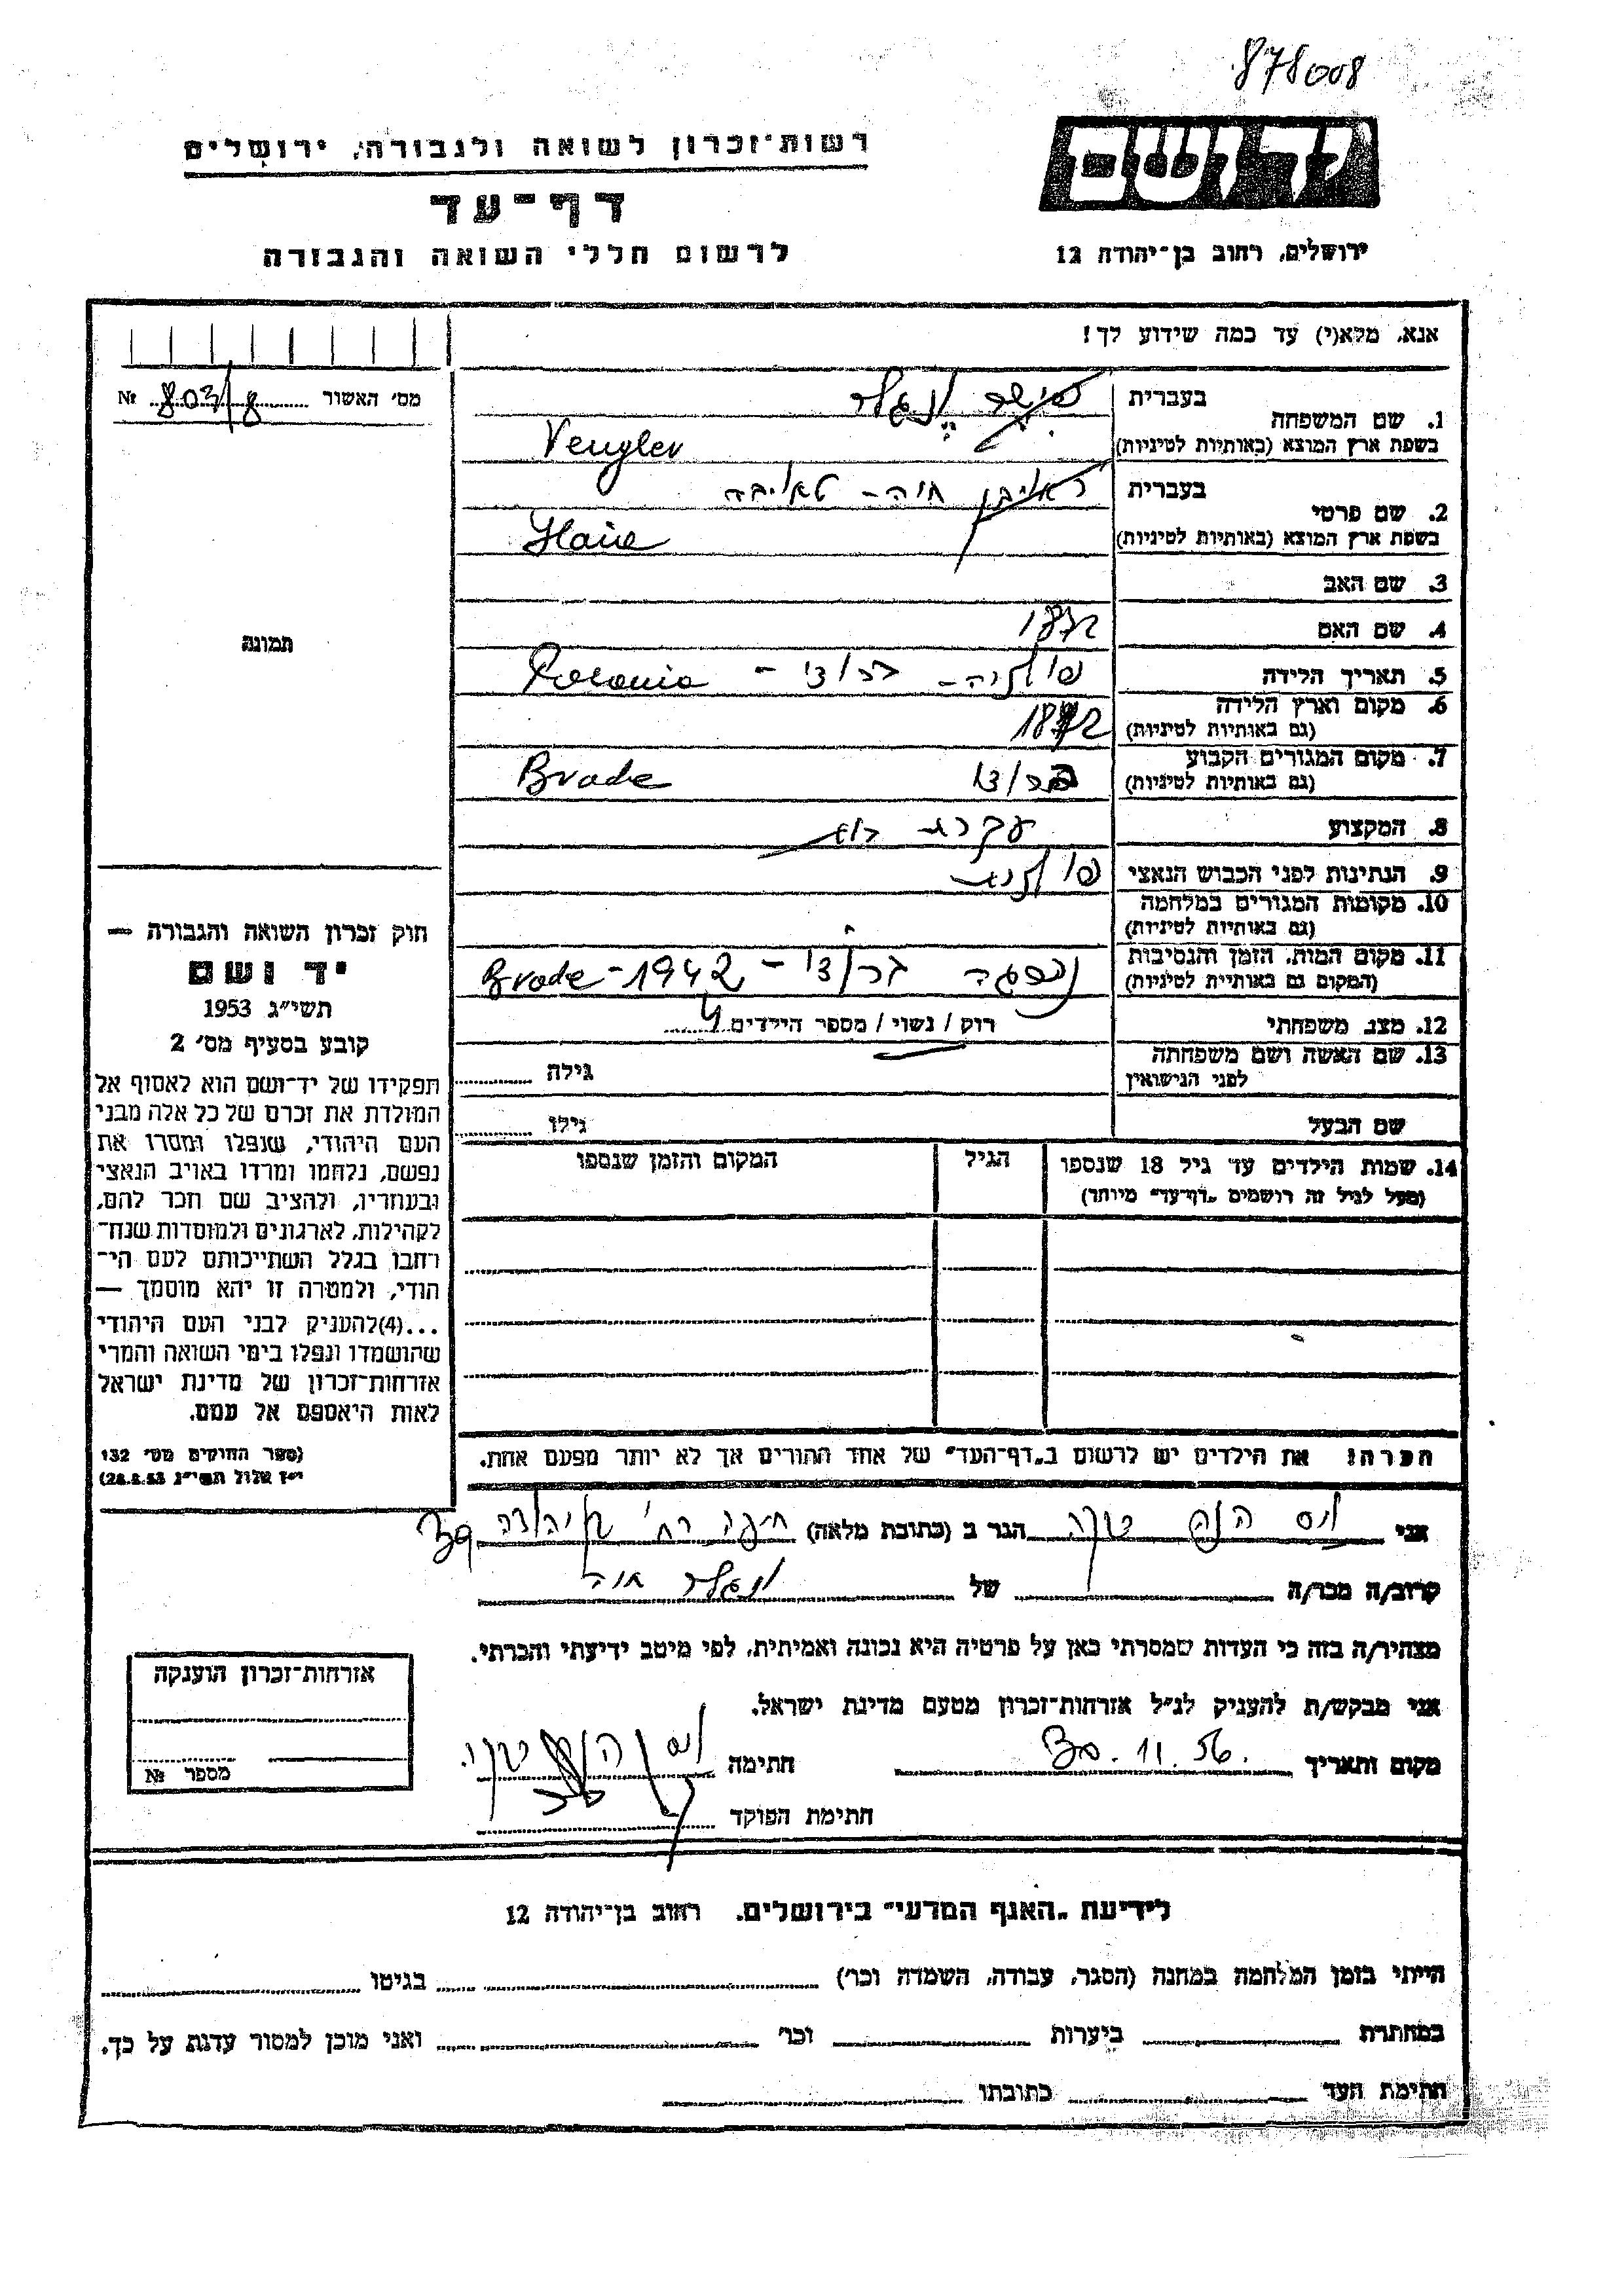 878008
רשות־זכרון לשואה ולגבורה, ירושלים
יד ושם
דף־עד
לרשום חללי השואה והגבורה
ירושלים, רחוב בן־יהודה 12
אנא, מלא(י) עד כמה שידוע לך!
מס' האשור 803/8 №
1. שם המשפחה
בעברית ונגלר
בשפת ארץ המוצא (באותיות לטיניות) Vengler
2. שם פרטי
בעברית חוה - טאיבה
בשפת ארץ המוצא (באותיות לטיניות) Haie
3. שם האב
4. שם האם 1872
תמונה
5. תאריך הלידה פולניה - ברודי - Polonia
6. מקום וארץ הלידה
(גם באותיות לטיניות) 1872
7. מקום המגורים הקבוע
(גם באותיות לטיניות) ברודי Brode
8. המקצוע עקרת בית
9. הנתינות לפני הכבוש הנאצי פולנית
10. מקומות המגורים במלחמה
(גם באותיות לטיניות)
11. מקום המות, הזמן והנסיבות
(המקום גם באותיות לטיניות) נספתה ברודי - Brode - 1942
12. מצב משפחתי רווק / נשוי / מספר הילדים 4
13. שם האשה ושם משפחתה
לפני הנישואין
גילה
שם הבעל גילו
14. שמות הילדים עד גיל 18 שנספו הגיל המקום והזמן שנספו
(מעל לגיל זה רושמים „דף־עד" מיוחד)
חוק זכרון השואה והגבורה —
יד ושם
תשי"ג 1953
קובע בסעיף מס' 2
תפקידו של יד־ושם הוא לאסוף אל
המולדת את זכרם של כל אלה מבני
העם היהודי, שנפלו ומסרו את
נפשם, נלחמו ומרדו באויב הנאצי
ובעוזריו, ולהציב שם וזכר להם,
לקהילות, לארגונים ולמוסדות שנח־
רבו בגלל השתייכותם לעם הי־
הודי, ולמטרה זו יהא מוסמך —
...(4)להעניק לבני העם היהודי
שהושמדו ונפלו בימי השואה והמרי
אזרחות־זכרון של מדינת ישראל
לאות היאספם אל עמם.
(ספר החוקים מס' 132
י"ז אלול תשי"ג 28.8.53)
הערה: את הילדים יש לרשום ב„דף־העד" של אחד ההורים אך לא יותר מפעם אחת.
אני הגר ב (כתובת מלאה) חיפה רח' 39
קרוב/ה מכר/ה של ונגלר חוה
מצהיר/ה בזה כי העדות שמסרתי כאן על פרטיה היא נכונה ואמיתית, לפי מיטב ידיעתי והכרתי.
אני מבקש/ת להעניק לנ"ל אזרחות־זכרון מטעם מדינת ישראל.
מקום ותאריך 30.11.56. חתימה
חתימת הפוקד
אזרחות־זכרון הוענקה
מספר №
לידיעת „האגף המדעי" בירושלים. רחוב בן־יהודה 12
הייתי בזמן המלחמה במחנה (הסגר, עבודה, השמדה וכו') בגיטו
במחתרת ביערות וכו' ואני מוכן למסור עדות על כך.
חתימת העד כתובתו